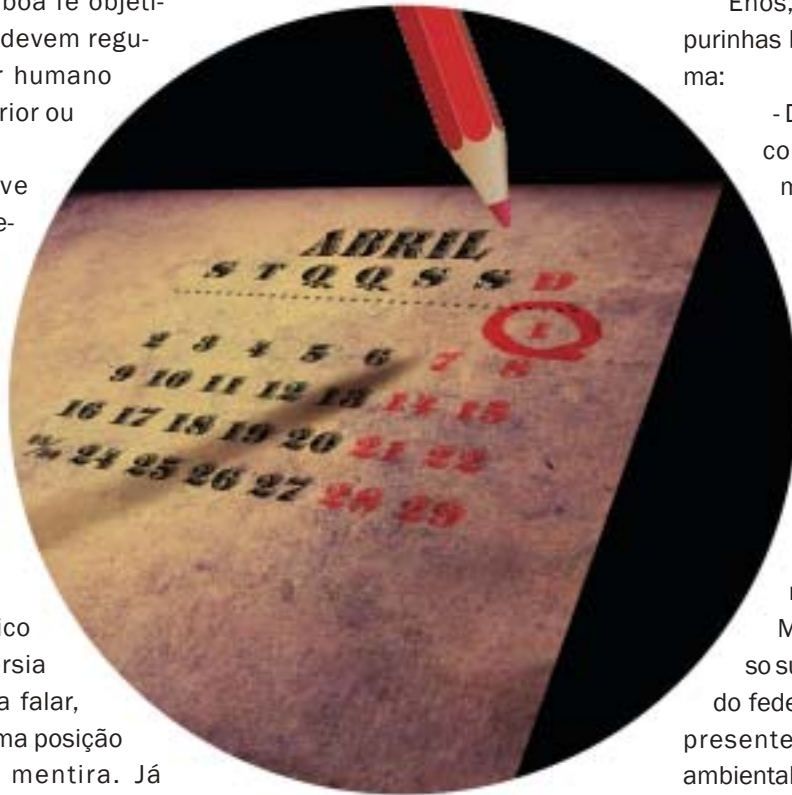 boa fé objeti-
devem regu-
r humano
rior ou
ve
e-
ico
rsia
a falar,
ma posição
mentira. Já
ABRIL
S T Q Q S S D
1
2 3 4 5 6 7 8
9 10 11 12 13 14 15
16 17 18 19 20 21 22
23/30 24 25 26 27 28 29
Enos,
purinhas
ma:
- D
co
m
M
so su
do fede
presente
ambiental